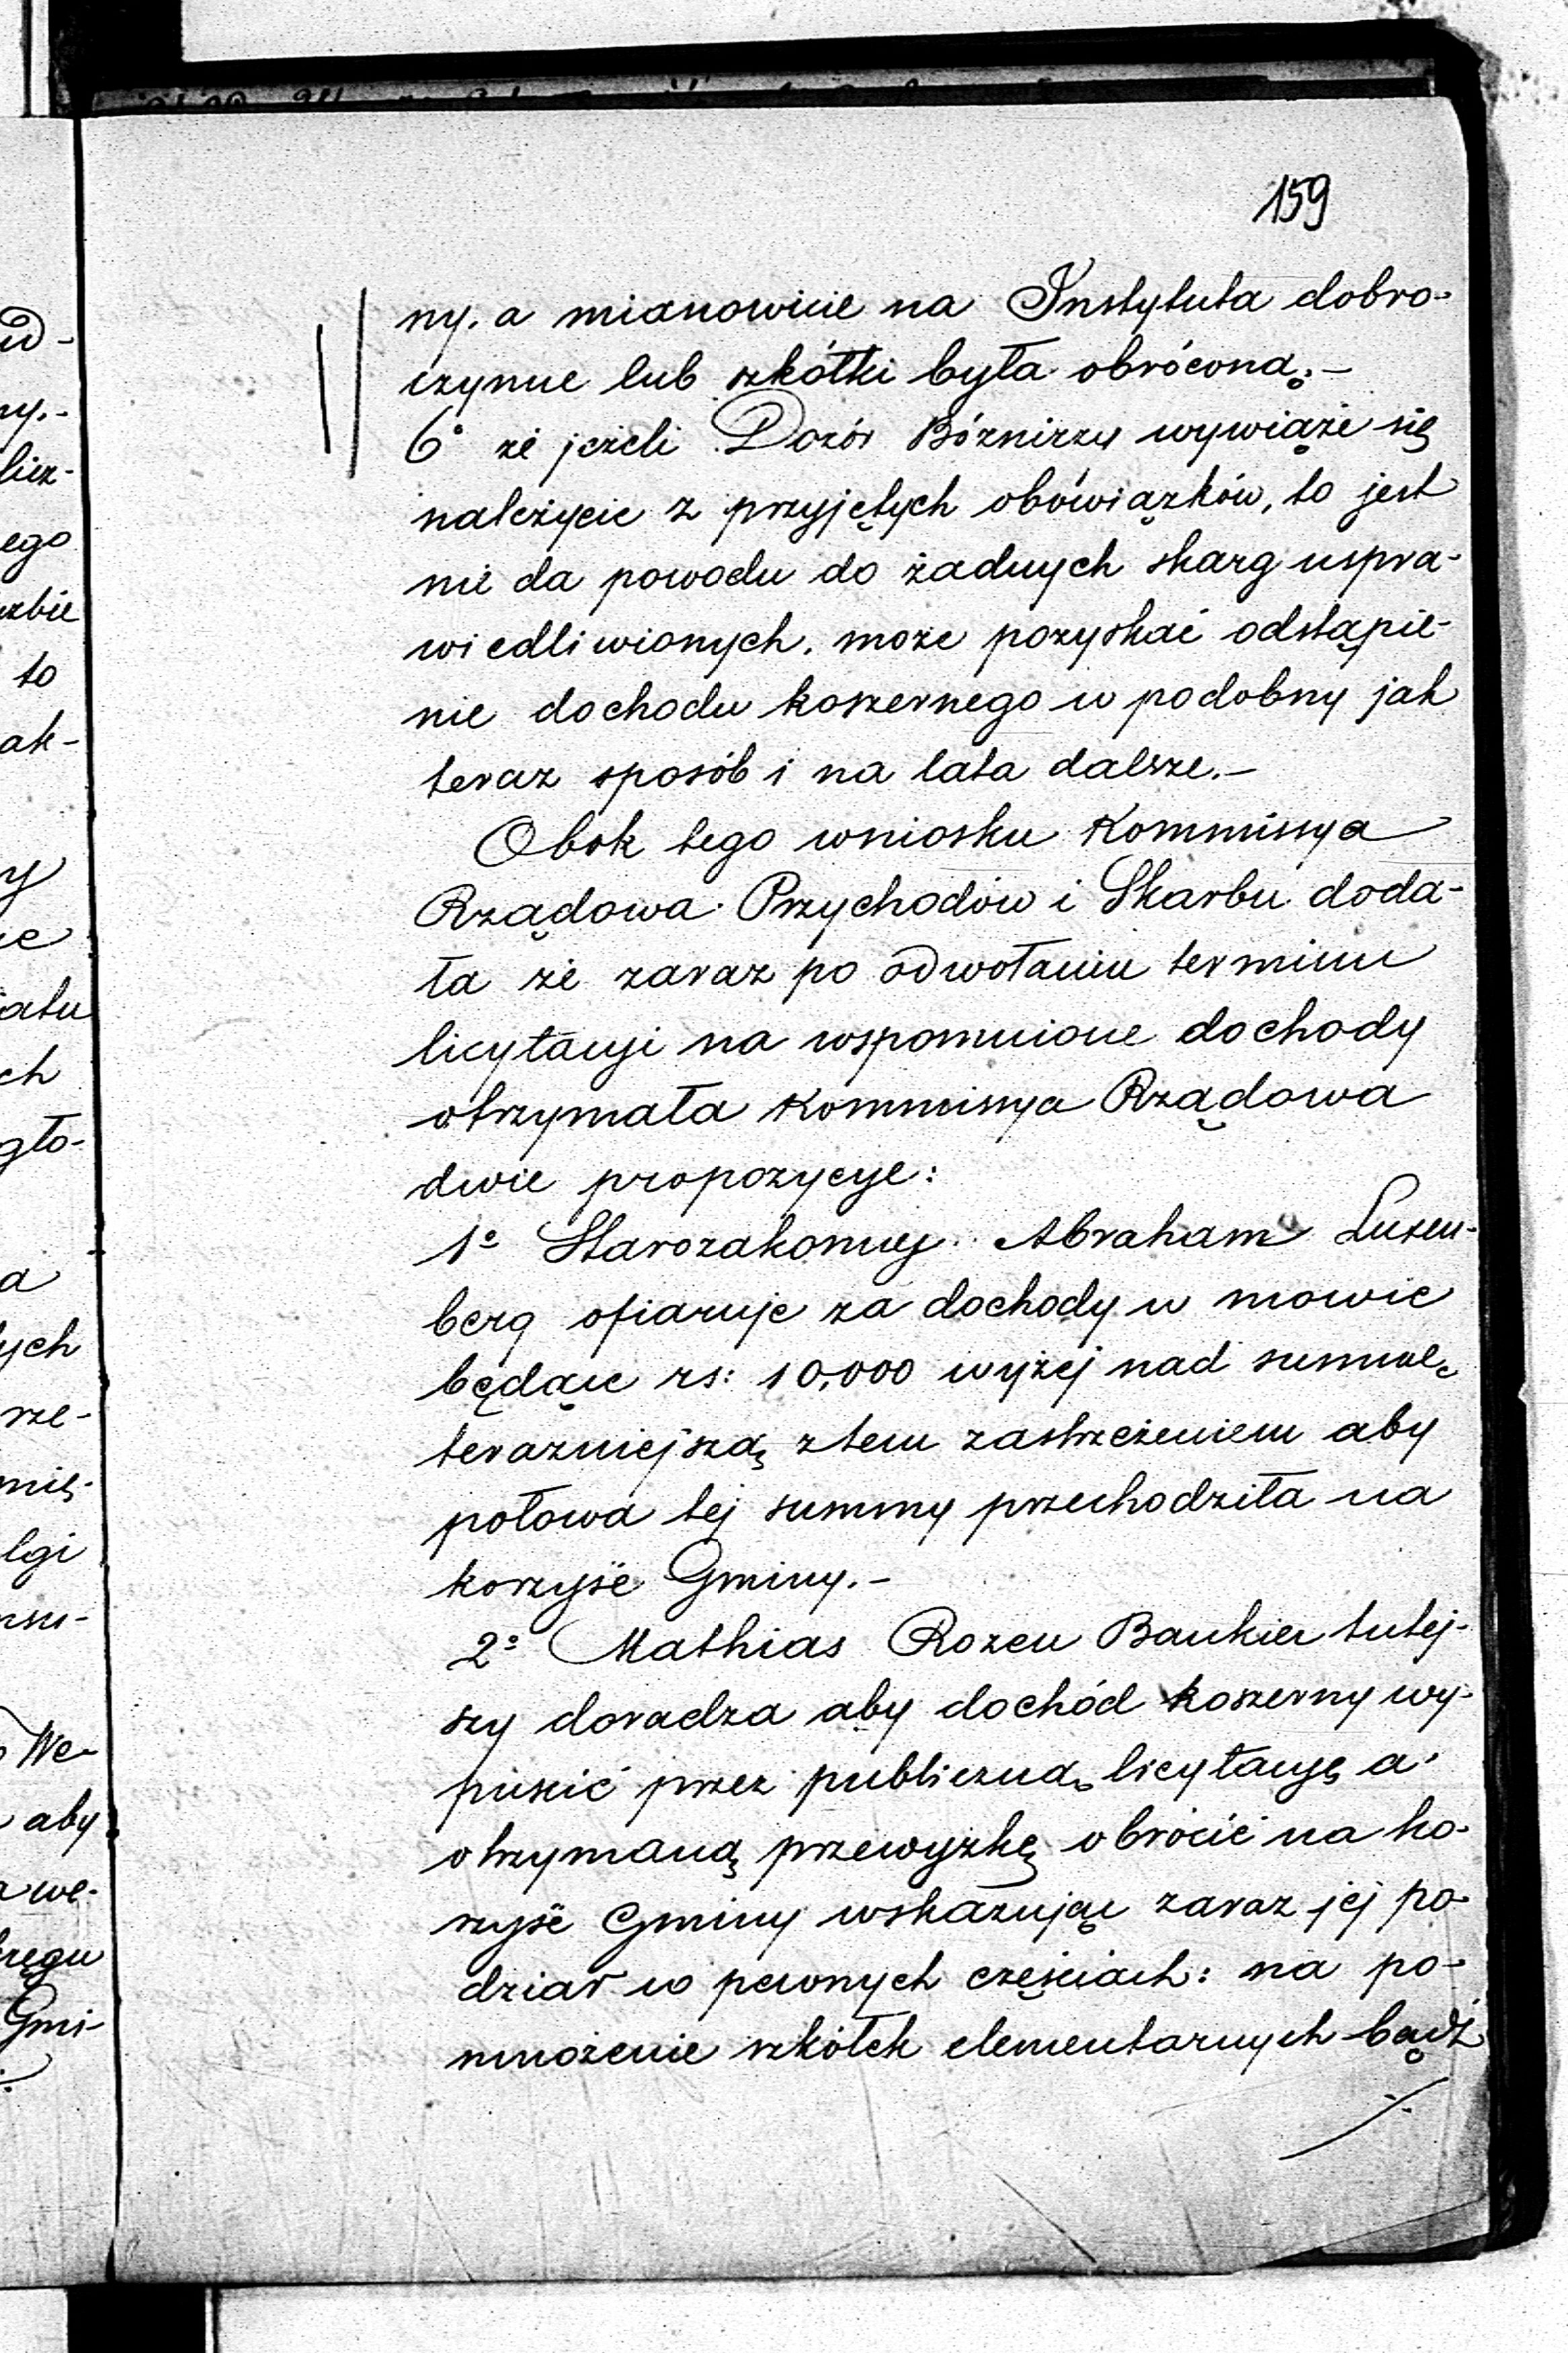 159
ny. a mianowicie na Instytuta dobro-
czynne lub szkółki była obróconą.-
6° że jeżeli Dozór Bóźniczy wywiąże się
należycie z przyjętych obowiązków, to jest
nie da powodu do żadnych skarg uspra-
wiedliwionych. może pozyskać odstąpie-
nie dochodu koszernego w podobny jak
teraz sposób i na lata dalsze.-
Obok tego wniosku Kommissya
Rządowa Przychodów i Skarbu doda-
ła że zaraz po odwołaniu terminu
licytacyi na wspomnione dochody
otrzymała Kommissya Rządowa
dwie propozycye:
1° Starozakonny Abraham Luxen-
berg ofiaruje za dochody w mowie
będące rs: 10,000 wyżej nad summę
teraźniejszą z tem zastrzeżeniem aby
połowa tej summy przechodziła na
korzyść Gminy.-
2° Mathias Rozen Bankier tutej-
szy doradza aby dochód koszerny wy-
puścić przez publiczną licytacyę a
otrzymaną przewyżkę obrócić na ko-
rzyść Gminy wskazując zaraz jej po-
dział w pewnych częściach: na po-
mnożenie szkółek elementarnych bądź
./.
ny.-
licz-
ego
to
ak-
y
atu
ch
gło-
a
ych
rze-
mię-
lgi
We-
aby
we-
ręgu
Gmi-